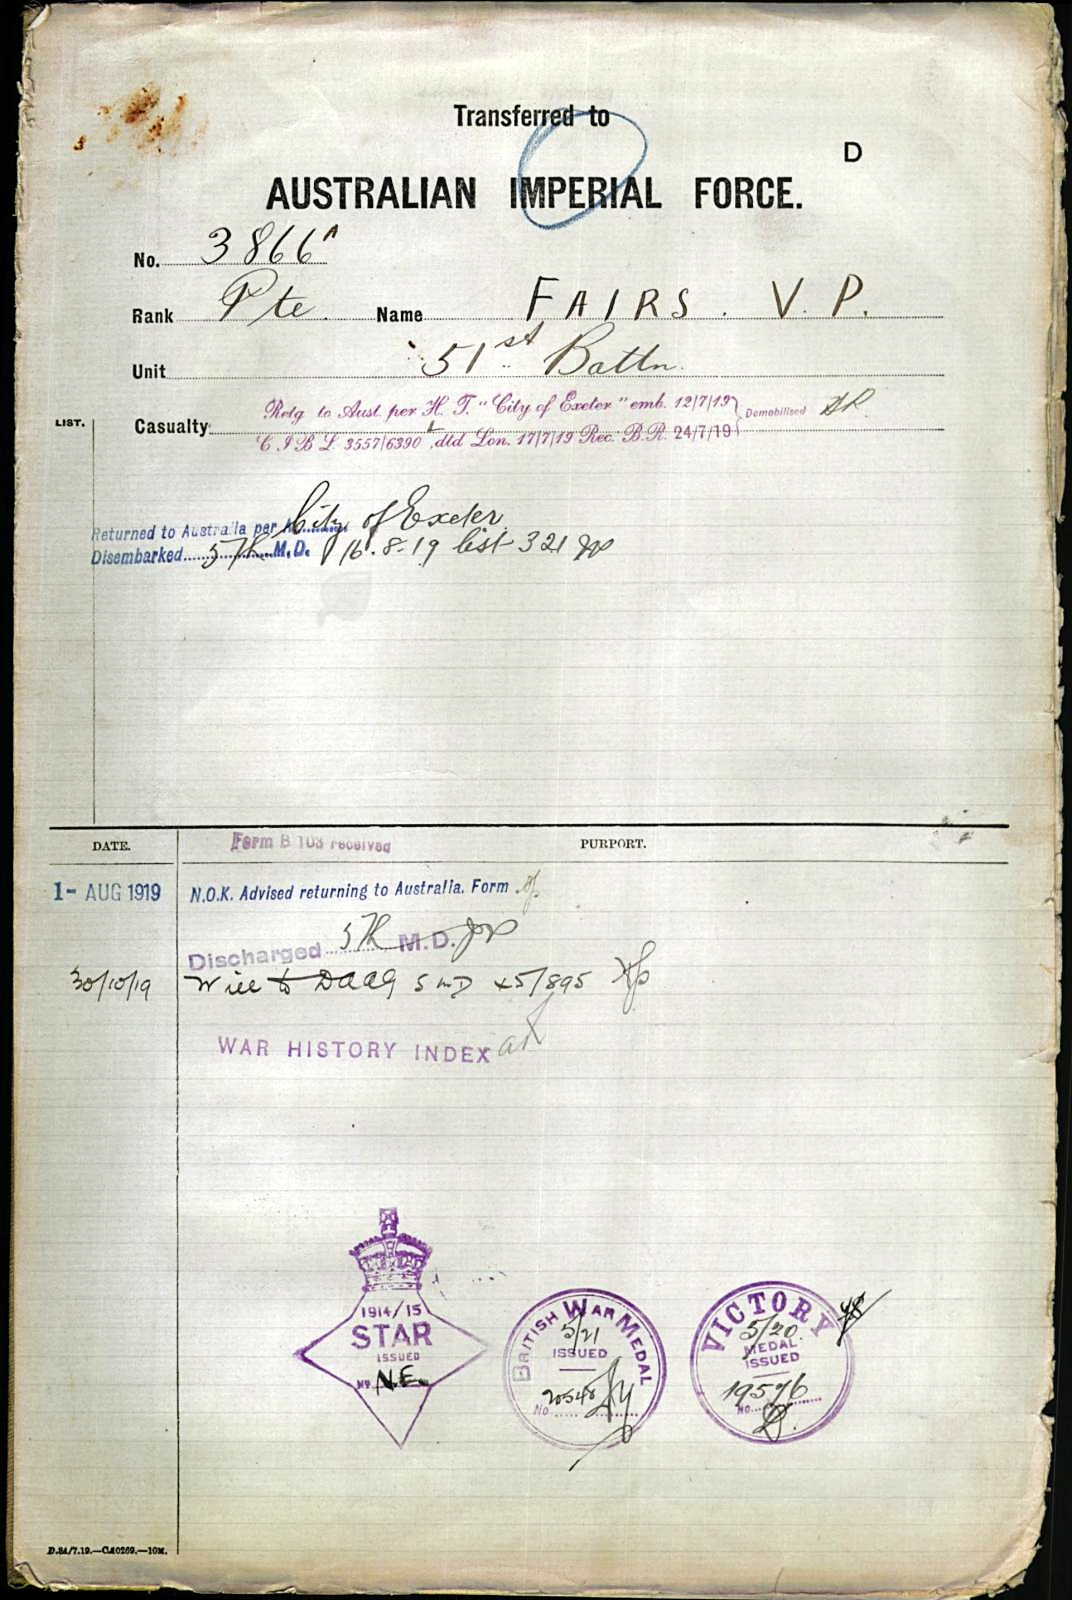 Transferred to
D
AUSTRALIAN IMPERIAL FORCE.
No. 3866A
Rank Pte. Name FAIRS. V. P.
Unit 51st Battn.
LIST.
Casualty Retg to Aust. per H. T. "City of Exeter" emb. 12/7/19 Demobilised
C I B L 3557/6390 dtd Lon. 17/7/19 Rec. B.R. 24/7/19
Returned to Australia per City of Exeter
Disembarked 5th M.D. 16.8.19 list 321
DATE. Form B 103 received PURPORT.
1- AUG 1919 N.O.K. Advised returning to Australia. Form
Discharged 5th M.D.
30/10/19 Will to DAAG 5 MD 45/895
WAR HISTORY INDEX
1914/15
STAR
ISSUED
No N.E.
BRITISH WAR MEDAL
5/21
ISSUED
No
VICTORY
5/20
MEDAL
ISSUED
19576
No
D.84/7.19.—C.10269.—10M.